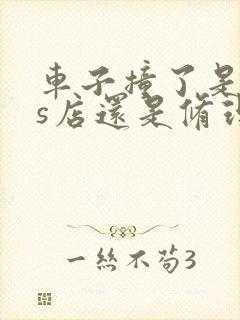 車子撞了是
s店還是脩理
一絲不苟3